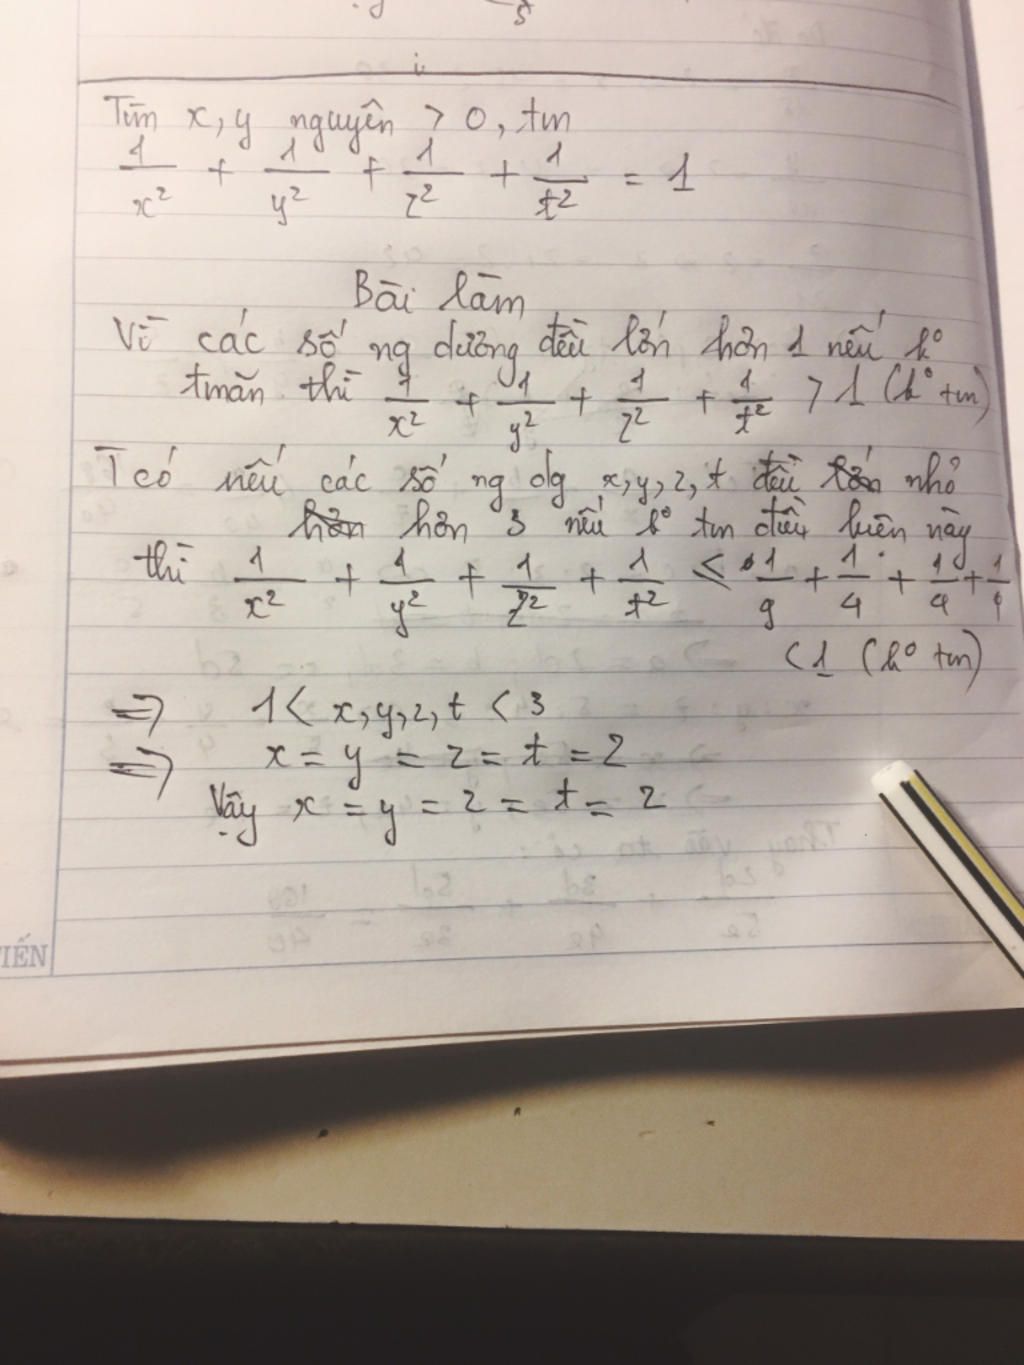 Tìm x, y nguyên > 0, tm
1/x² + 1/y² + 1/z² + 1/t² = 1
Bài làm
Vì các số ng dương đều lớn hơn 1 nếu k°
tmãn thì 1/x² + 1/y² + 1/z² + 1/t² > 1 (k° tm)
T có nếu các số ng dg x, y, z, t đều nhỏ
hơn 3 nếu k° tm điều kiện này
thì 1/x² + 1/y² + 1/z² + 1/t² ≤ 1/9 + 1/4 + 1/4 + 1/4
< 1 (k° tm)
=> 1 < x, y, z, t < 3
=> x = y = z = t = 2
Vậy x = y = z = t = 2
TIẾN